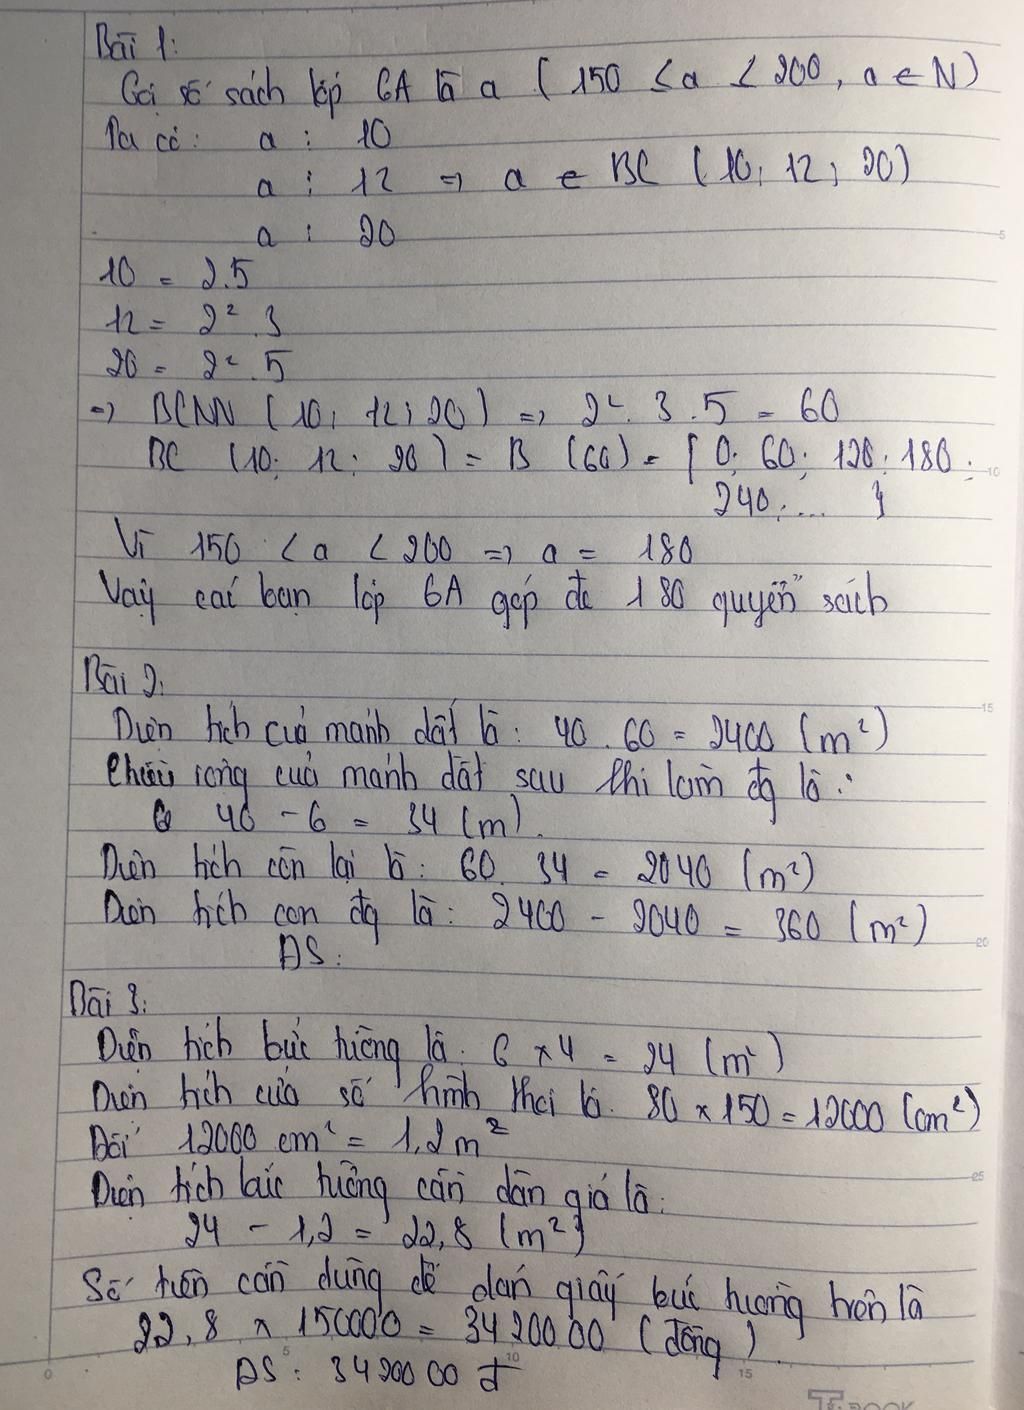 Bài 1:
Gọi số sách lớp 6A là a ( 150 ≤ a ≤ 200, a ∈ N)
Ta có: a ⋮ 10
a ⋮ 12 => a ∈ BC (10; 12; 20)
a ⋮ 20
10 = 2.5
12 = 2² . 3
20 = 2² . 5
=> BCNN (10; 12; 20) => 2² . 3 . 5 = 60
BC (10; 12; 20) = B (60) = { 0; 60; 120; 180;
240; ... }
Vì 150 < a < 200 => a = 180
Vậy các bạn lớp 6A góp đc 180 quyển sách
Bài 2:
Diện tích của mảnh đất là: 40 . 60 = 2400 (m²)
Chiều rộng của mảnh đất sau khi làm đg là:
40 - 6 = 34 (m).
Diện tích còn lại là: 60 . 34 = 2040 (m²)
Diện tích con đg là: 2400 - 2040 = 360 (m²)
ĐS:
Bài 3:
Diện tích bức tường là: 6 x 4 = 24 (m²)
Diện tích cửa sổ hình thoi là: 80 x 150 = 12000 (cm²)
Đổi 12000 cm² = 1,2 m²
Diện tích bức tường cần dán giấ là:
24 - 1,2 = 22,8 (m²)
Số tiền cần dùng để dán giấy bức tường trên là
22,8 x 150000 = 3420000 (đồng).
ĐS: 3420000 đ
5
10
15
20
25
0 5 10 15